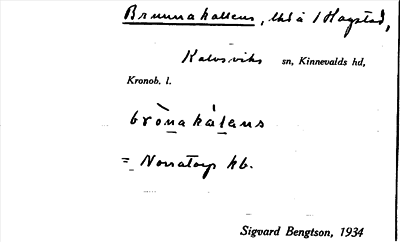 Brunnakallens, lht å 1 Hagstad,
Kalvsviks sn, Kinnevalds hd,
Kronob. l.
brònakálans
= Norratorp hb.
Sigvard Bengtson, 1934